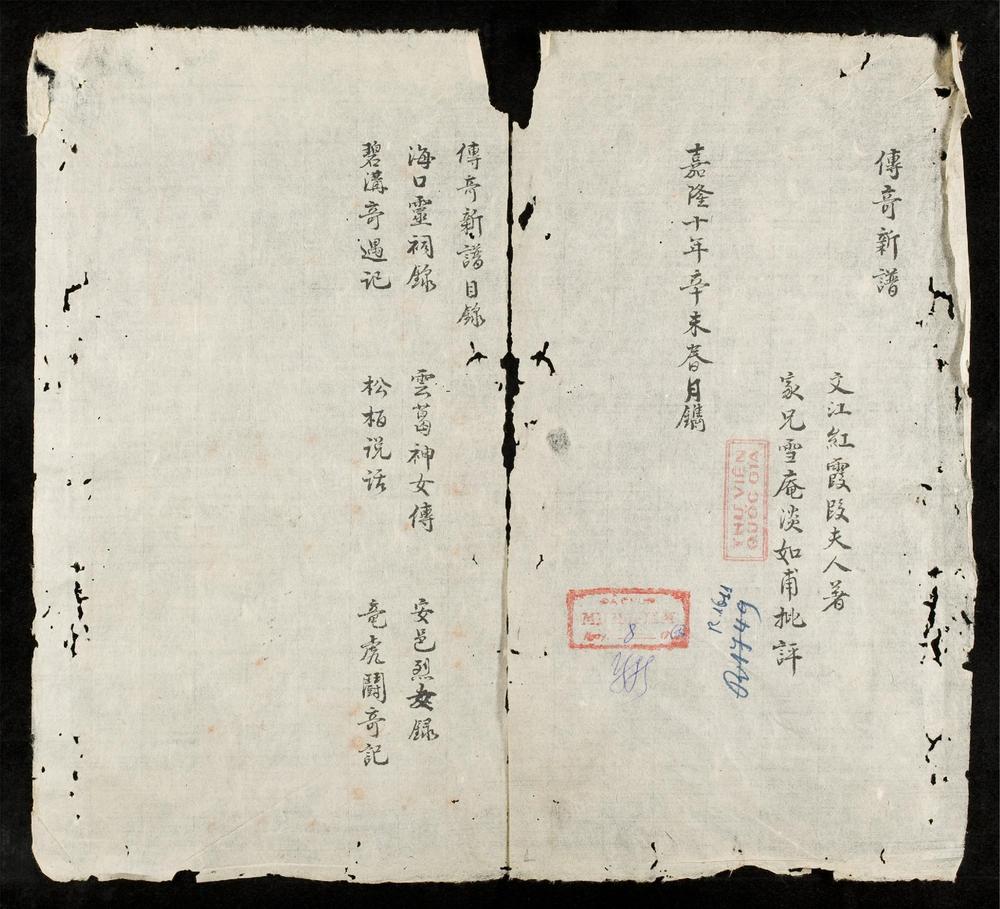 傳竒新譜
文江紅霞段夫人著
家兄雪庵淡如甫批評
嘉隆十年辛未春月鐫
THƯ VIỆN
QUỐC GIA
R.1611
8
傳竒新譜目錄
海口靈祠錄 雲葛神女傳 安邑烈女録
碧溝竒遇记 松柏说话 竜虎鬪竒記